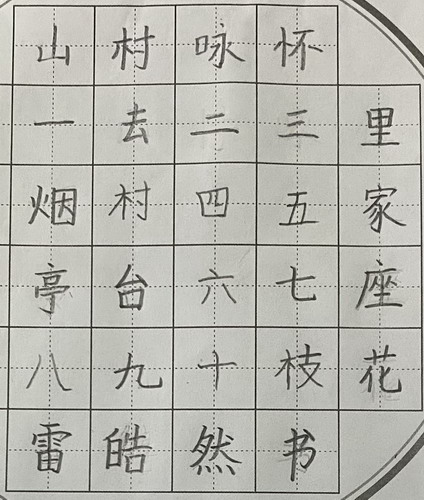 山村咏怀
一去二三里
烟村四五家
亭台六七座
八九十枝花
雷皓然书